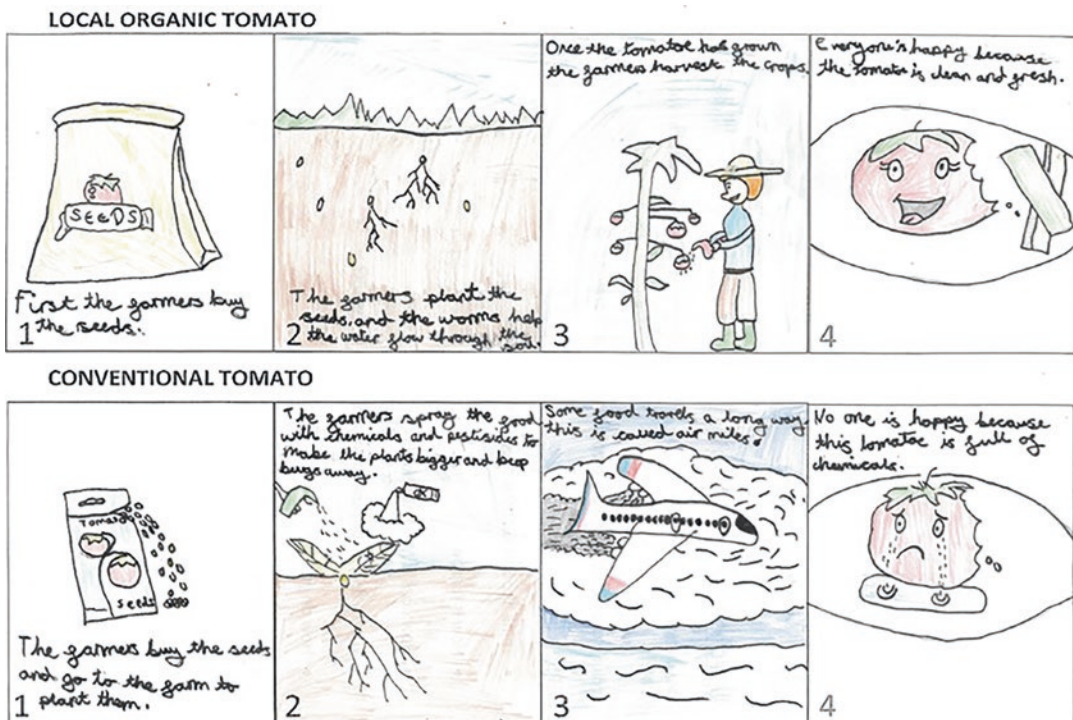 LOCAL ORGANIC TOMATO
SEEDS
First the farmers buy
the seeds.
1
The farmers plant the
seeds, and the worms help
the water flow through the
soil.
2
Once the tomatoe has grown
the farmers harvest the crops.
3
Everyone's happy because
the tomato is clean and fresh.
4
CONVENTIONAL TOMATO
Tomato
Seeds
The farmers buy the seeds
and go to the farm to
plant them.
1
The farmers spray the food
with chemicals and pestisides to
make the plants bigger and keep
bugs away.
2
Some food travels a long way,
this is called air miles.
3
No one is happy because
this tomatoe is full of
chemicals.
4